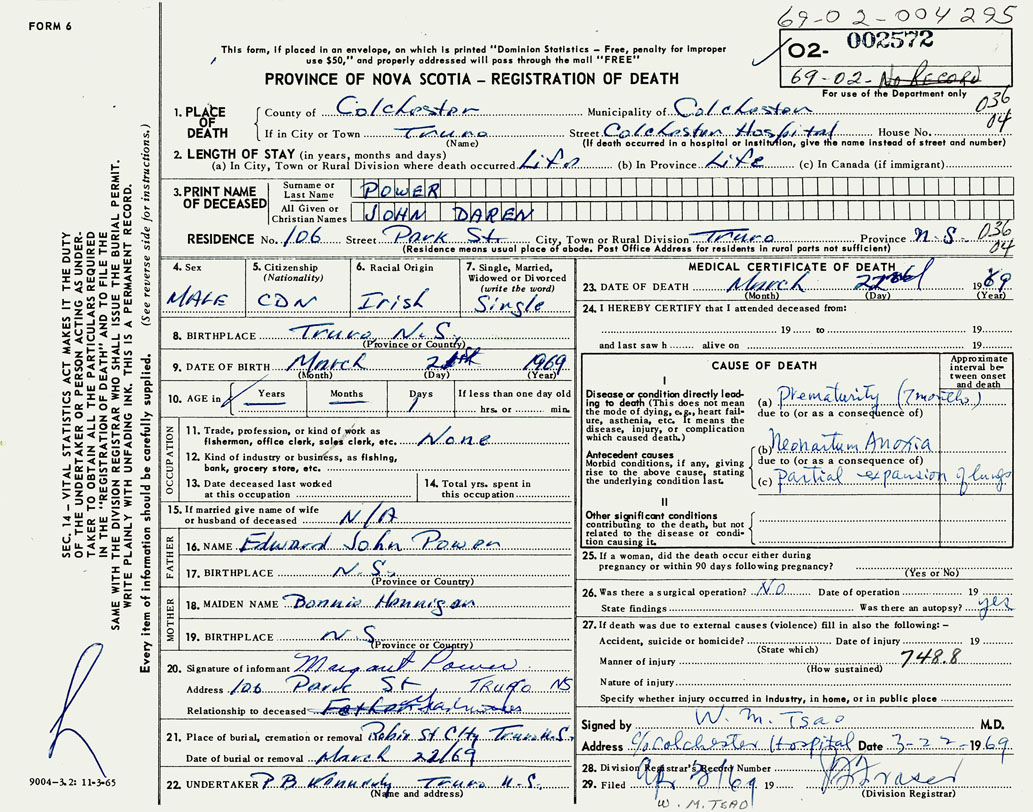 FORM 6
69-02-004295
This form, if placed in an envelope, on which is printed "Dominion Statistics – Free, penalty for improper
use $50," and properly addressed will pass through the mail "FREE"
O2- 002572
69-02- No Record
For use of the Department only
PROVINCE OF NOVA SCOTIA – REGISTRATION OF DEATH
SEC. 14 – VITAL STATISTICS ACT MAKES IT THE DUTY
OF THE UNDERTAKER OR PERSON ACTING AS UNDER-
TAKER TO OBTAIN ALL THE PARTICULARS REQUIRED
IN THE "REGISTRATION OF DEATH" AND TO FILE THE
SAME WITH THE DIVISION REGISTRAR WHO SHALL ISSUE THE BURIAL PERMIT.
WRITE PLAINLY WITH UNFADING INK. THIS IS A PERMANENT RECORD.
Every item of information should be carefully supplied. (See reverse side for instructions.)
9004-3.2: 11-3-65
1. PLACE OF DEATH
County of Colchester Municipality of Colchester 036
If in City or Town Truro Street Colchester Hospital House No. 04
(Name) (If death occurred in a hospital or institution, give the name instead of street and number)
2. LENGTH OF STAY (in years, months and days)
(a) In City, Town or Rural Division where death occurred Life (b) In Province Life (c) In Canada (if immigrant)
3. PRINT NAME OF DECEASED
Surname or Last Name POWER
All Given or Christian Names JOHN DAREN
RESIDENCE No. 106 Street Park St. City, Town or Rural Division Truro Province N.S. 036
04
(Residence means usual place of abode. Post Office Address for residents in rural parts not sufficient)
4. Sex
MALE
5. Citizenship
(Nationality)
CDN
6. Racial Origin
Irish
7. Single, Married,
Widowed or Divorced
(write the word)
Single
8. BIRTHPLACE Truro N.S.
(Province or Country)
9. DATE OF BIRTH March 21st 1969
(Month) (Day) (Year)
10. AGE in Years Months Days If less than one day old
hrs. or min.
OCCUPATION
11. Trade, profession, or kind of work as
fisherman, office clerk, sales clerk, etc. None
12. Kind of industry or business, as fishing,
bank, grocery store, etc.
13. Date deceased last worked
at this occupation
14. Total yrs. spent in
this occupation
15. If married give name of wife
or husband of deceased N/A
FATHER
16. NAME Edward John Power
17. BIRTHPLACE N.S.
(Province or Country)
MOTHER
18. MAIDEN NAME Bonnie Hennigar
19. BIRTHPLACE N.S
(Province or Country)
20. Signature of informant Margaret Power
Address 106 Park St Truro NS
Relationship to deceased Father
21. Place of burial, cremation or removal Robie St C/ty Truro N.S.
Date of burial or removal March 22/69
22. UNDERTAKER P B Kennedy Truro N.S.
(Name and address)
MEDICAL CERTIFICATE OF DEATH
23. DATE OF DEATH March 22nd 1969
(Month) (Day) (Year)
24. I HEREBY CERTIFY that I attended deceased from:
19 to 19
and last saw h alive on 19
CAUSE OF DEATH
Approximate
interval be-
tween onset
and death
I
Disease or condition directly lead-
ing to death (This does not mean
the mode of dying, e.g., heart fail-
ure, asthenia, etc. It means the
disease, injury, or complication
which caused death.)
(a) Prematurity (7 months)
due to (or as a consequence of)
Antecedent causes
Morbid conditions, if any, giving
rise to the above cause, stating
the underlying condition last.
(b) Neonartum Anoxia
due to (or as a consequence of)
(c) Partial expansion of lungs
II
Other significant conditions
contributing to the death, but not
related to the disease or condi-
tion causing it.
25. If a woman, did the death occur either during
pregnancy or within 90 days following pregnancy?
(Yes or No)
26. Was there a surgical operation? NO Date of operation 19
State findings Was there an autopsy? yes
27. If death was due to external causes (violence) fill in also the following: –
Accident, suicide or homicide? Date of injury 19
(State which)
Manner of injury 748.8
(How sustained)
Nature of injury
Specify whether injury occurred in industry, in home, or in public place
Signed by W. M. Tsao M.D.
Address c/o Colchester Hospital Date 3-22-1969
28. Division Registrar's Record Number
29. Filed Apr 2/69 19 Fraser
(Division Registrar)
W. M. TSAO